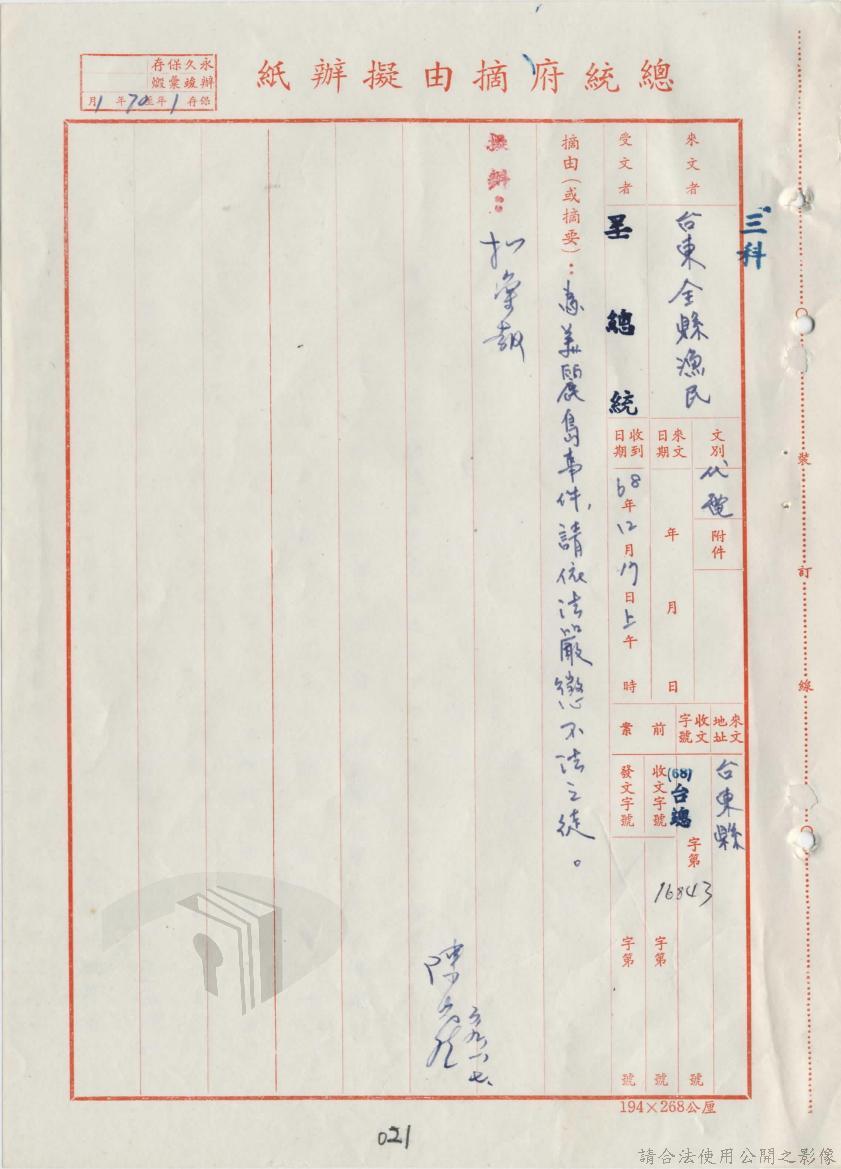 總統府摘由擬辦紙
永久保存
辦竣彙燬
保存1年至70年1月
三科
來文者
台東全縣漁民
文別
代電
附件
來文地址
台東縣
受文者
呈總統
來文日期
年月日
收到日期
68年12月17日上午時
收文字號
(68)台總字第16843號
前案
收文字號
字第號
發文字號
字第號
摘由(或摘要):為美麗島事件,請依法嚴懲不法之徒。
擬辦:
裝訂線
194×268公厘
021
請合法使用公開之影像